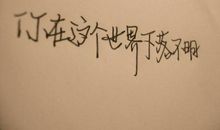 你在这个世界下落不明